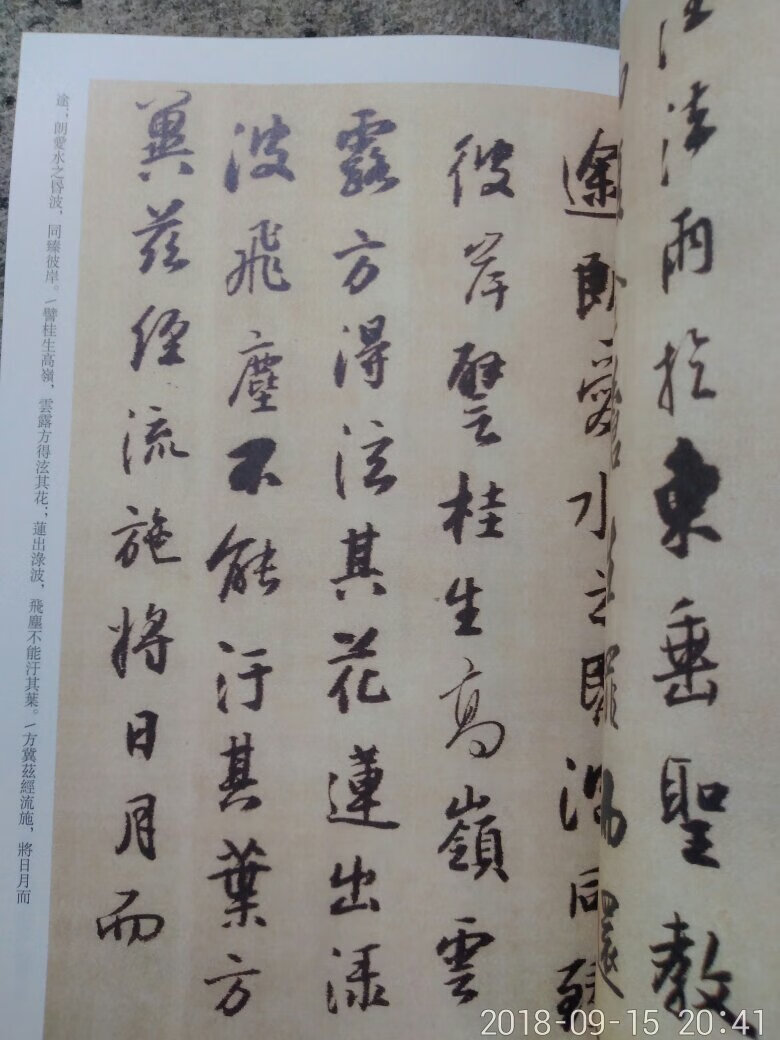 法雨於東垂聖教
途朗愛水之昏波同臻
彼岸譬桂生高嶺雲
露方得泫其花蓮出淥
波飛塵不能汙其葉方
冀茲經流施將日月而
途；朗愛水之昏波，同臻彼岸。/譬桂生高嶺，雲露方得泫其花；蓮出淥波，飛塵不能汙其葉。/方冀茲經流施，將日月而
2018-09-15 20:41